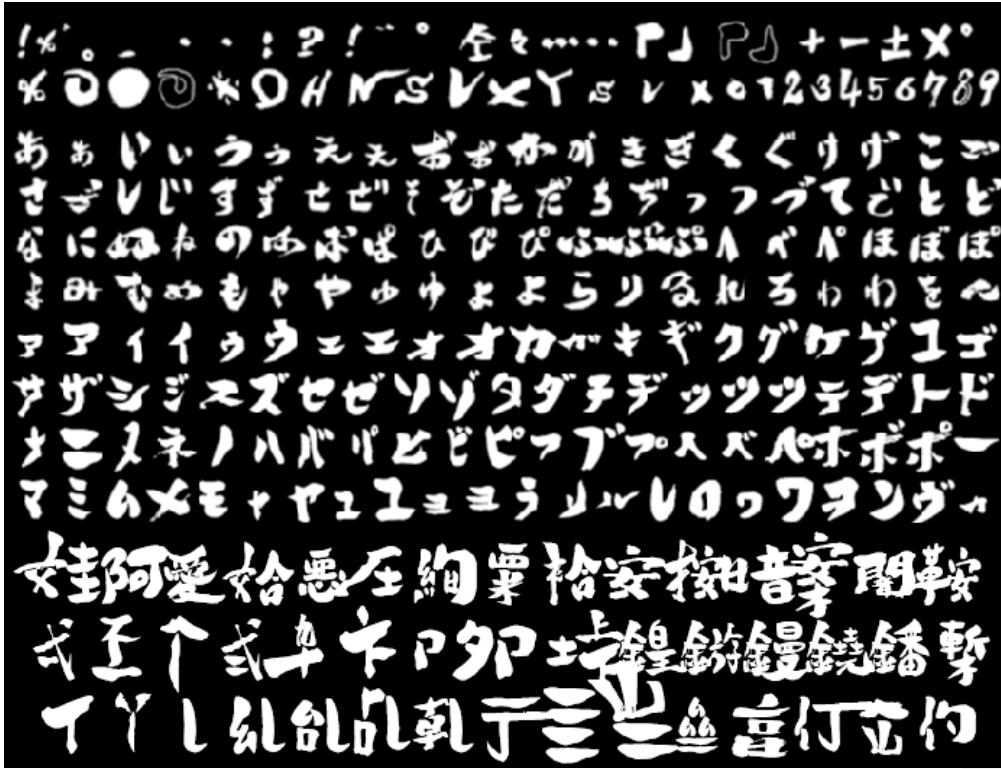 ! % 。 ・ ・ : ? ! ¨ ° 仝 々 …… 『 』 + − ± × °
% ◎ ● * O H N S V X Y s v x 0 1 2 3 4 5 6 7 8 9
あ ぁ い ぃ う ぅ え ぇ お ぉ か が き ぎ く ぐ け げ こ ご
さ ざ し じ す ず せ ぜ そ ぞ た だ ち ぢ っ つ づ て で と ど
な に ぬ ね の は ば ぱ ひ び ぴ ふ ぶ ぷ へ べ ぺ ほ ぼ ぽ
ま み む め も ゃ や ゅ ゆ ょ よ ら り る れ ろ ゎ わ を ん
ァ ア ィ イ ゥ ウ ェ エ ォ オ カ ガ キ ギ ク グ ケ ゲ コ ゴ
サ ザ シ ジ ス ズ セ ゼ ソ ゾ タ ダ チ ヂ ッ ツ ヅ テ デ ト ド
ナ ニ ヌ ネ ノ ハ バ パ ヒ ビ ピ フ ブ プ ヘ ベ ペ ホ ボ ポ ー
マ ミ ム メ モ ャ ヤ ュ ユ ョ ヨ ラ リ ル レ ロ ヮ ワ ヲ ン ヴ ヵ
娃 阿 愛 姶 悪 圧 絢 粟 袷 安 按 暗 案 闇 鞍
弌 丕 个 弍 卆 卞 卩 夘 鍠 鏝 鐃 鐇 鏨
丫 糺 于 仃